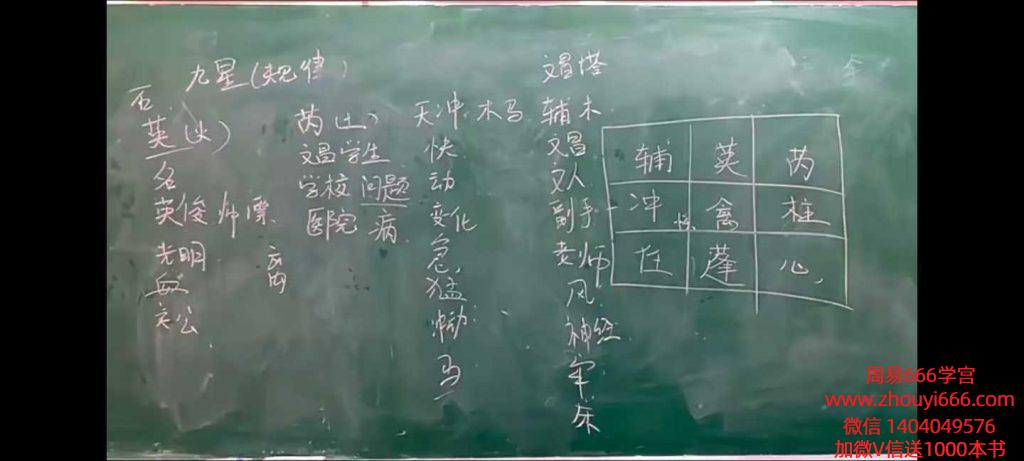 九星(规律)
英(火)
名
英俊 帅 漂
光明
血
离
芮(土)
文昌学生
学校 问题
医院 病
天冲 木 马
快
动
变化
急
猛
冲动
马
文昌塔
辅 木
文昌
文人
副手
老师
风
神经
牢
乐
辅 英 芮
冲 禽 柱
任 蓬 心
周易666学宫
www.zhouyi666.com
微信 1404049576
加微V信送1000本书